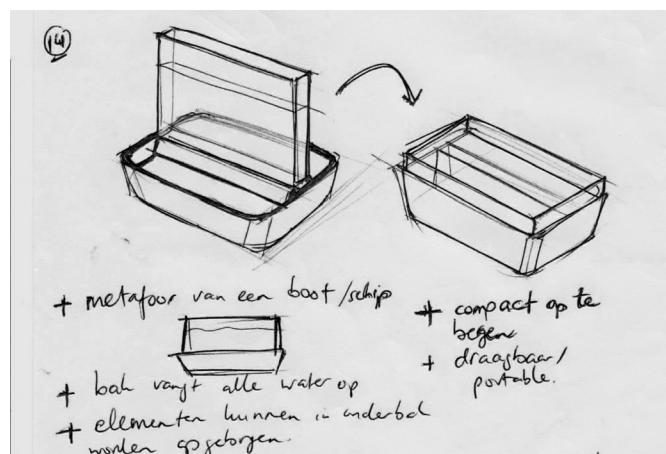 14
+ metafoor van een boot/schip
+ bak vangt alle water op
+ elementen kunnen in onderbak
worden opgeborgen.
+ compact op te
bergen
+ draagbaar/
portable.